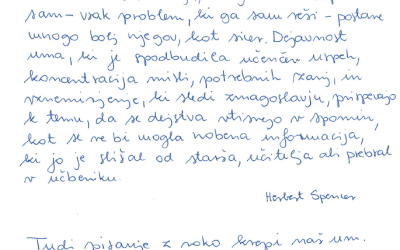 sam - vsak problem, ki ga sam reši - postane
mnogo bolj njegov, kot sicer. Dejavnost
uma, ki je spodbudila učenčev uspeh,
koncentracija misli, potrebnih zanj, in
vznemirjenje, ki sledi zmagoslavju, prispevajo
k temu, da se dejstva vtisnejo v spomin,
kot se ne bi mogla nobena informacija,
ki jo je slišal od starša, učitelja ali prebral
v učbeniku.
Herbert Spencer
Tudi pisanje z roko krepi naš um.